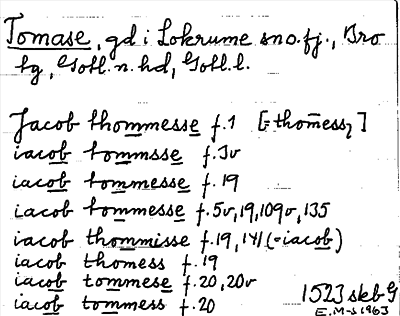 Tomase, gd i Lokrume sn o. fj., Bro
tg, Gotl. n. hd, Gotl. l.
Jacob thommesse f. 1 [= thom̄ess]
iacob tommsse f. 3v
iacob tommesse f. 19
iacob tommesse f. 5v, 19, 109v, 135
iacob thommisse f. 19, 141 (= iacob)
iacob thomess f. 19
iacob tommese f. 20, 20v
iacob tommess f. 20
1523 skb G
E. M-s 1963